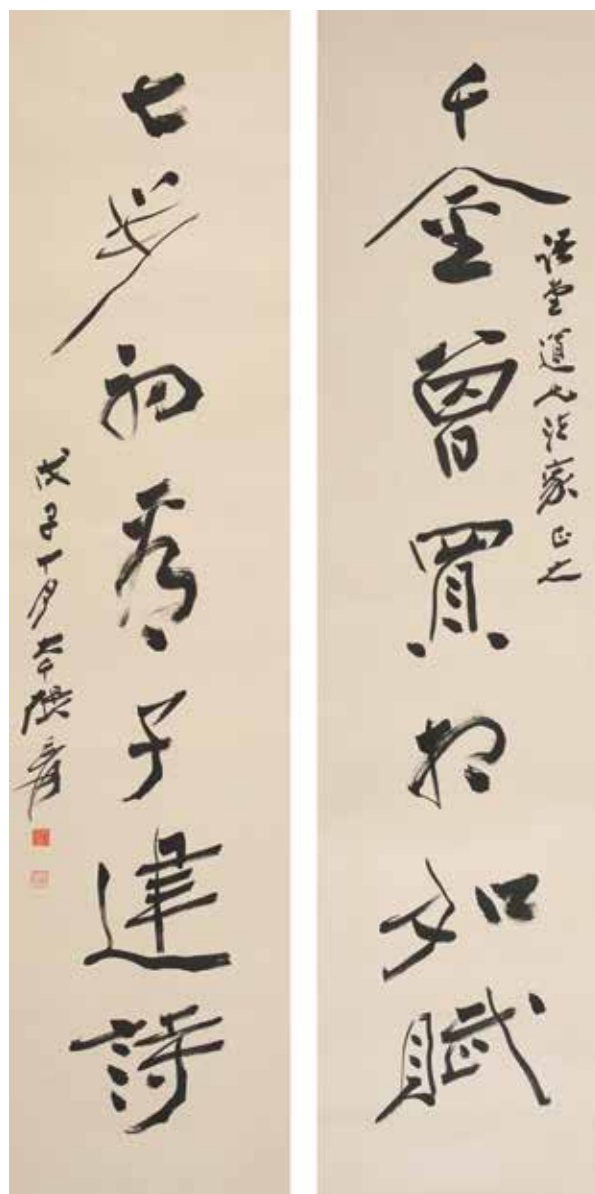 千金曾買相如賦
語堂道兄法家正之
七步初看子建詩
戊子十月大千張爰